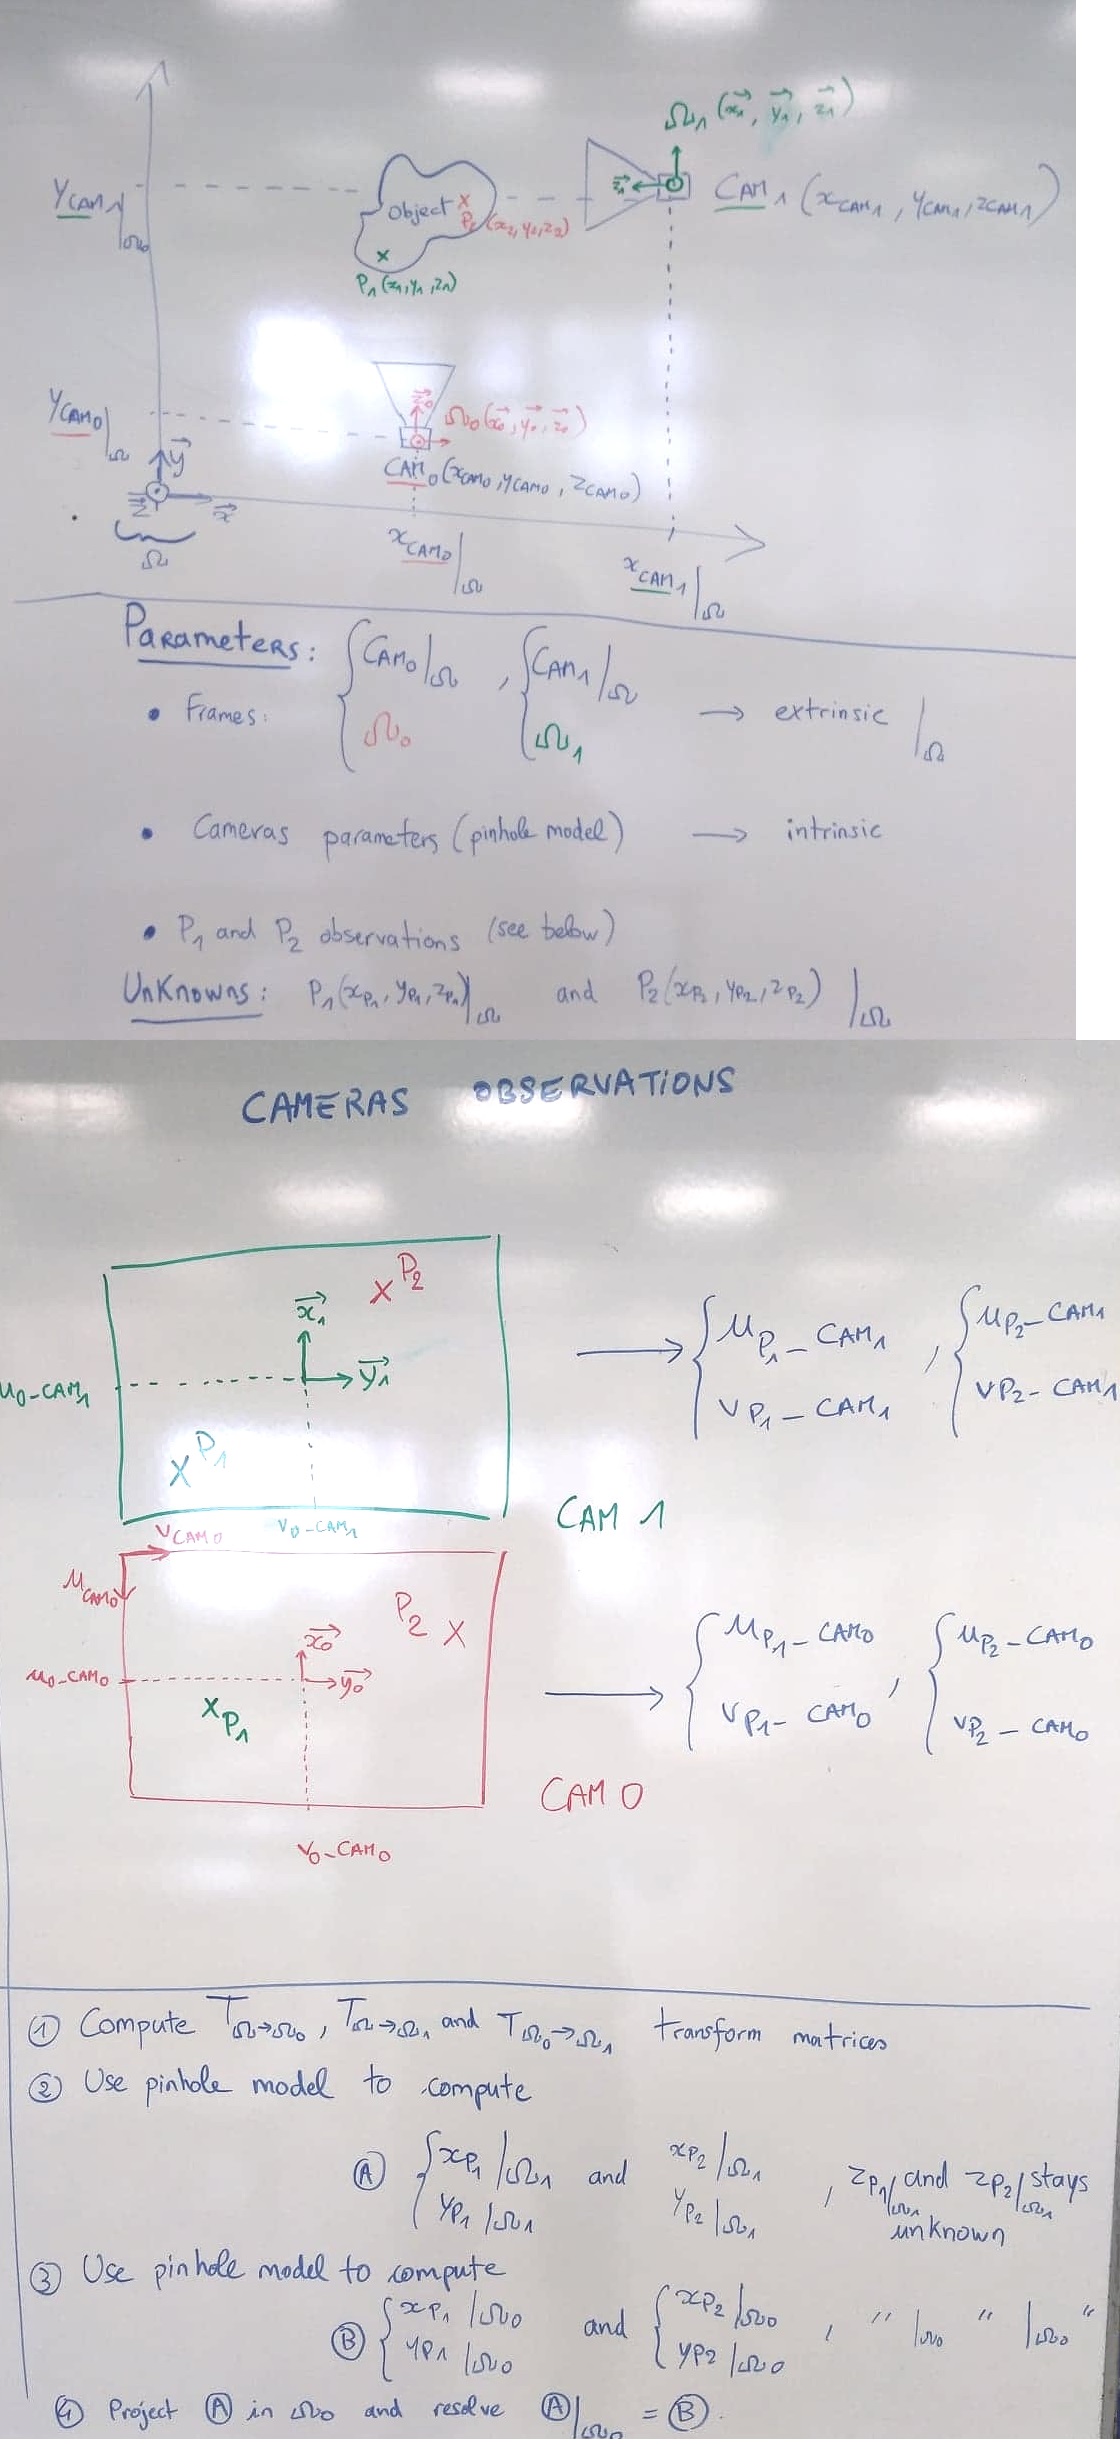 Ω₁ (x₁, y₁, z₁)
Y_CAM₁|Ω
Object
P₂(x₂,y₂,z₂)
z₁
CAM₁ (x_CAM₁, y_CAM₁, z_CAM₁)
P₁(x₁,y₁,z₁)
Y_CAM₀|Ω
z₀
Ω₀(x₀, y₀, z₀)
CAM₀(x_CAM₀, y_CAM₀, z_CAM₀)
y
z
x
Ω
x_CAM₀|Ω
x_CAM₁|Ω
Parameters: { CAM₀|Ω , { CAM₁/Ω
• Frames: Ω₀ Ω₁ → extrinsic |Ω
• Cameras parameters (pinhole model) → intrinsic
• P₁ and P₂ observations (see below)
Unknowns: P₁(x_P₁, y_P₁, z_P₁)|Ω and P₂(x_P₂, y_P₂, z_P₂)|Ω
CAMERAS OBSERVATIONS
X P₂
x₁
y₁
u₀-CAM₁
X P₁
v₀-CAM₁
CAM 1
{ u_P₁-CAM₁ , { u_P₂-CAM₁
v_P₁-CAM₁ v_P₂-CAM₁
v_CAM₀
u_CAM₀
P₂ X
x₀
u₀-CAM₀
y₀
X P₁
v₀-CAM₀
CAM 0
{ u_P₁-CAM₀ , { u_P₂-CAM₀
v_P₁-CAM₀ v_P₂-CAM₀
① Compute T_Ω→Ω₀, T_Ω→Ω₁ and T_Ω₀→Ω₁ transform matrices
② Use pinhole model to compute
Ⓐ { x_P₁/Ω₁ and x_P₂/Ω₁ , z_P₁/Ω₁ and z_P₂/Ω₁ stays
y_P₁/Ω₁ y_P₂|Ω₁ unknown
③ Use pinhole model to compute
Ⓑ { x_P₁|Ω₀ and { x_P₂|Ω₀ , " |Ω₀ " |Ω₀ "
y_P₁|Ω₀ y_P₂|Ω₀
④ Project Ⓐ in Ω₀ and resolve Ⓐ|Ω₀ = Ⓑ.